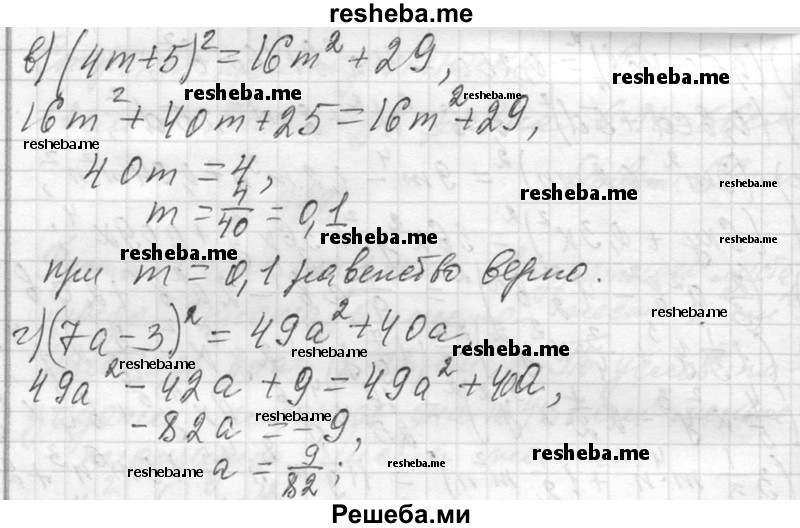 resheba.me
в) (4m+5)² = 16m² + 29,
resheba.me
resheba.me resheba.me
16m² + 40m + 25 = 16m² + 29,
resheba.me
40m = 4,
resheba.me
resheba.me
m = 4/40 = 0,1
resheba.me
resheba.me
при m = 0,1 равенство верно.
resheba.me
г) (7a − 3)² = 49a² + 40a
resheba.me resheba.me
resheba.me
49a² − 42a + 9 = 49a² + 40a,
resheba.me
−82a = −9,
resheba.me
a = 9/82;
resheba.me resheba.me
Решеба.ми